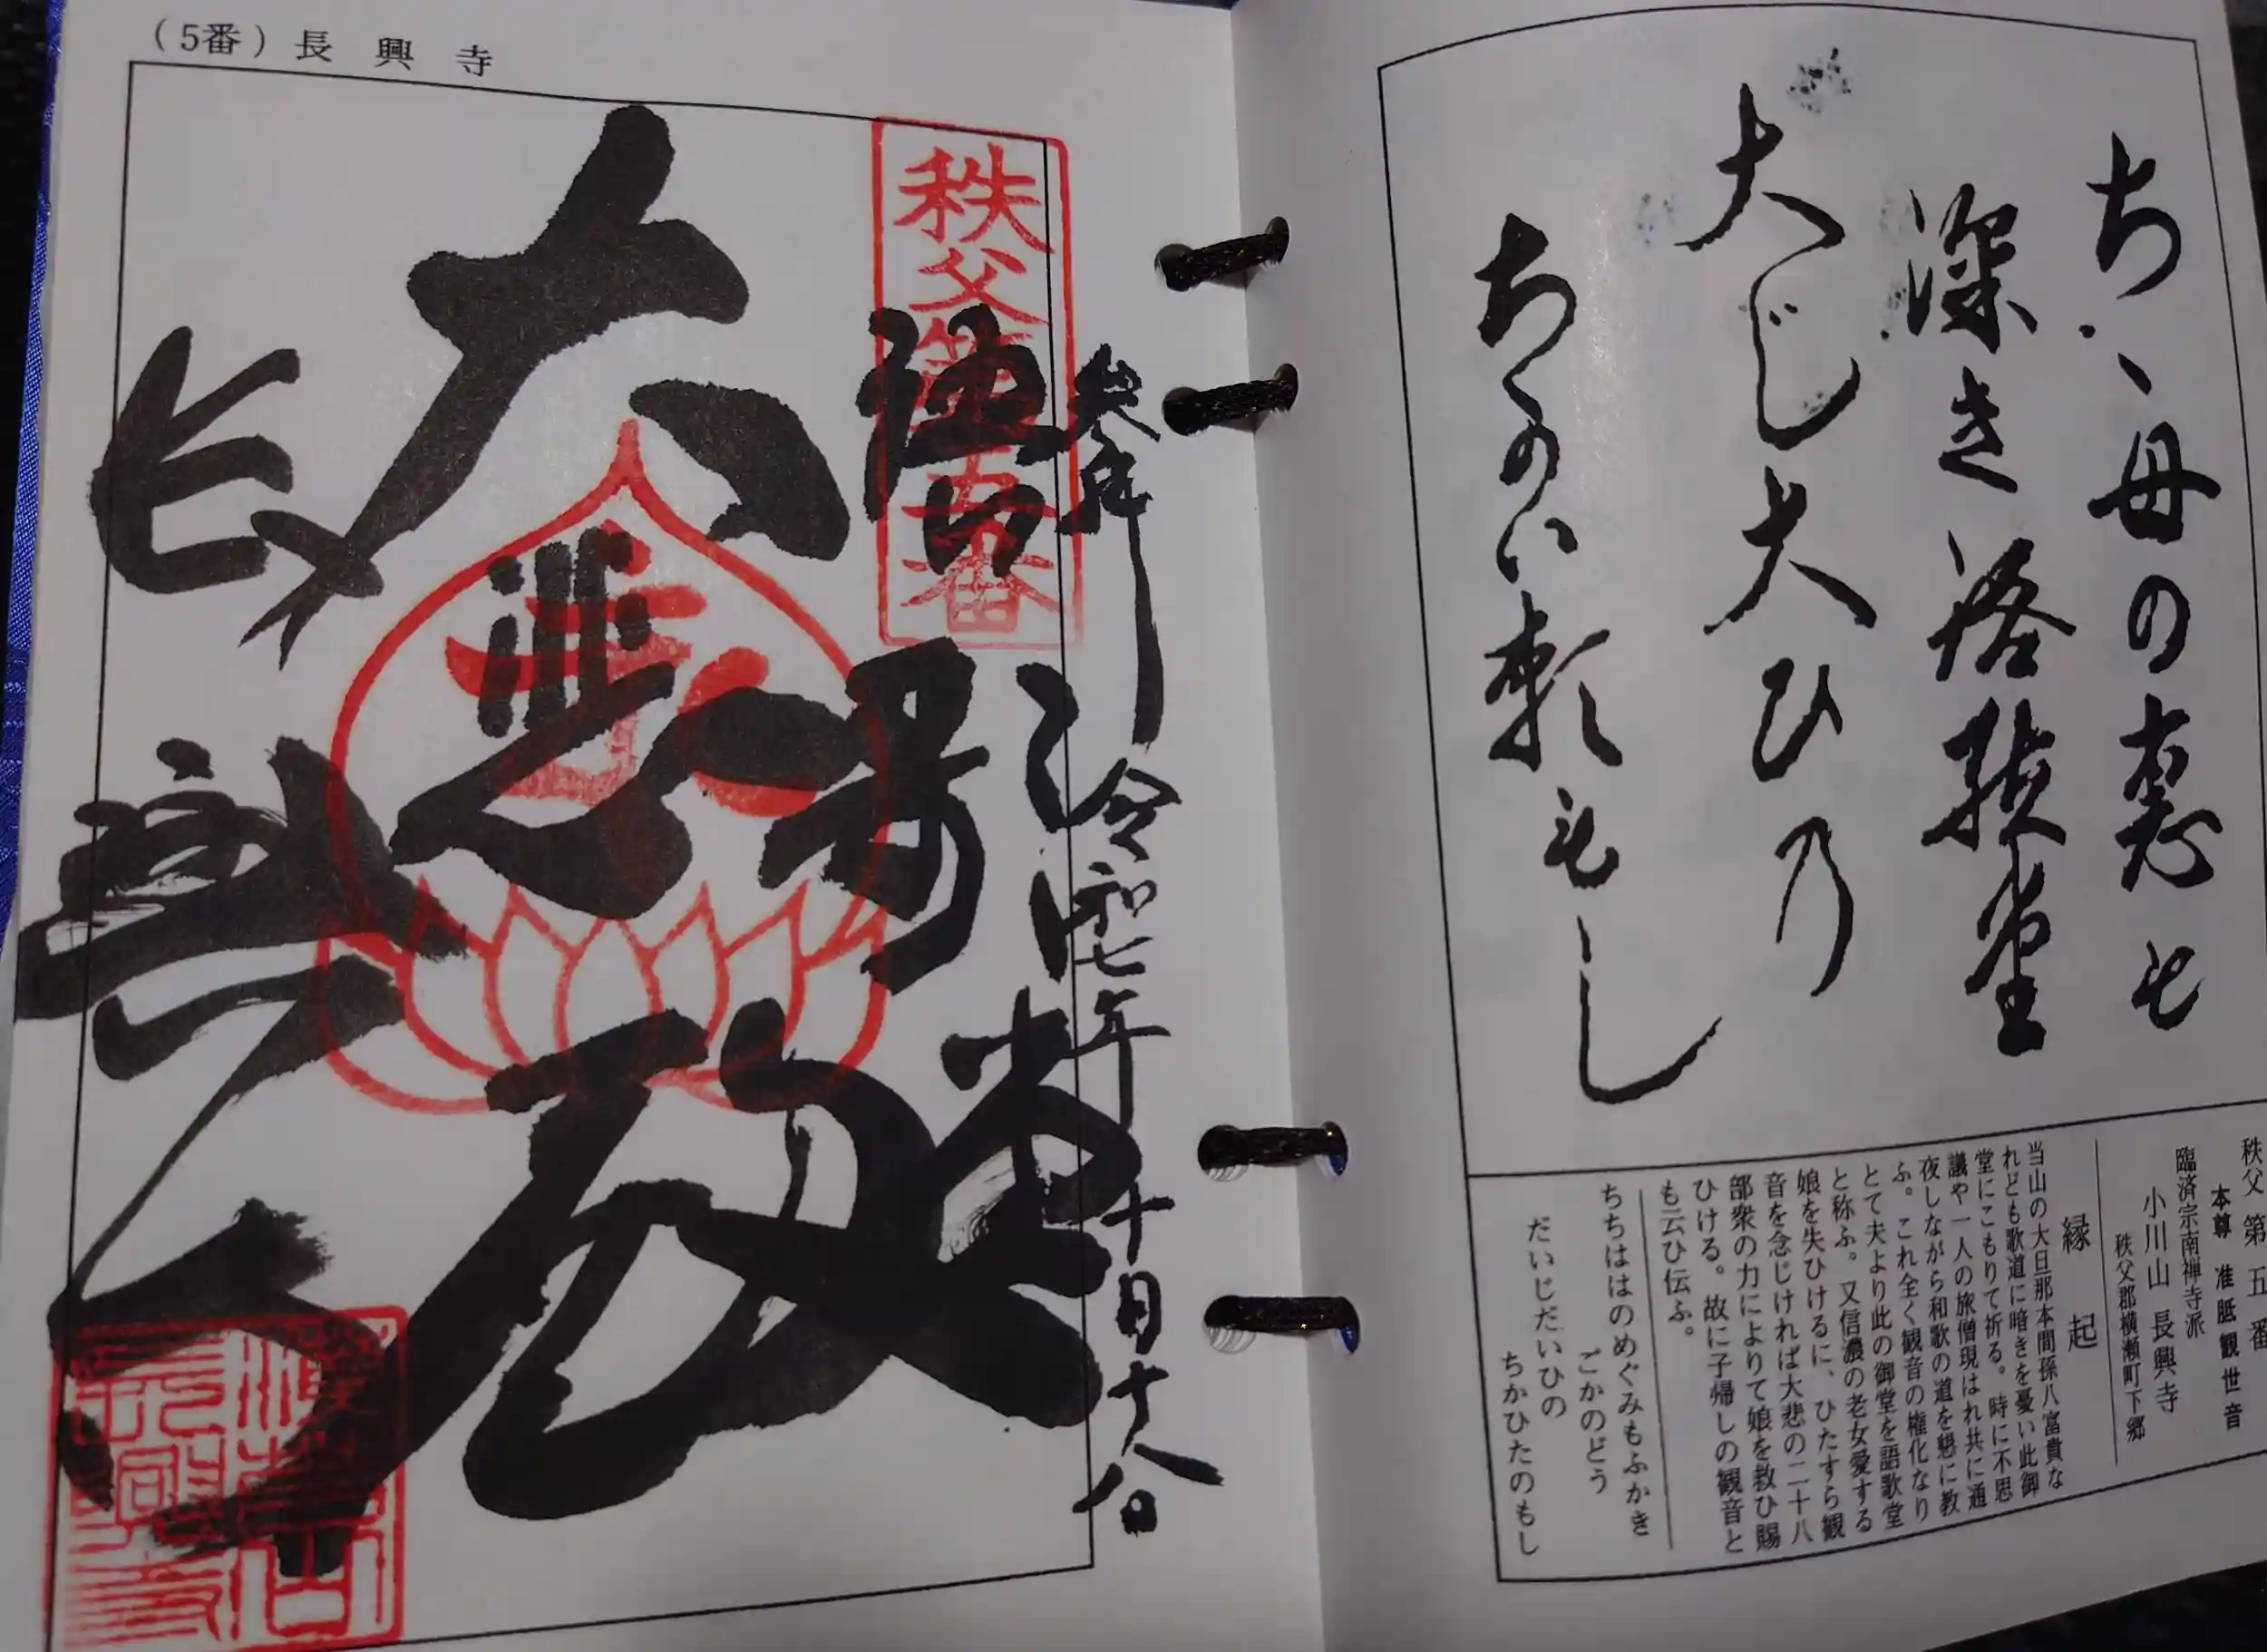 (5番) 長興寺
秩父第五番
奉拝
令和七年十月十八日
大悲殿
長興寺
ちゝ母の恵も
深き語歌堂
大じ大ひの
ちかひ頼もし
秩父第五番
本尊 准胝観世音
臨済宗南禅寺派
小川山 長興寺
秩父郡横瀬町下郷
縁起
当山の大旦那本間孫八富貴な
れども歌道に暗きを憂い此御
堂にこもりて祈る。時に不思
議や一人の旅僧現はれ共に通
夜しながら和歌の道を懇に教
ふ。これ全く観音の権化なり
とて夫より此の御堂を語歌堂
と称ふ。又信濃の老女愛する
娘を失ひけるに、ひたすら観
音を念じければ大悲の二十八
部衆の力によりて娘を救ひ賜
ひける。故に子帰しの観音と
も云ひ伝ふ。
ちちははのめぐみもふかき
ごかのどう
だいじだいひの
ちかひたのもし